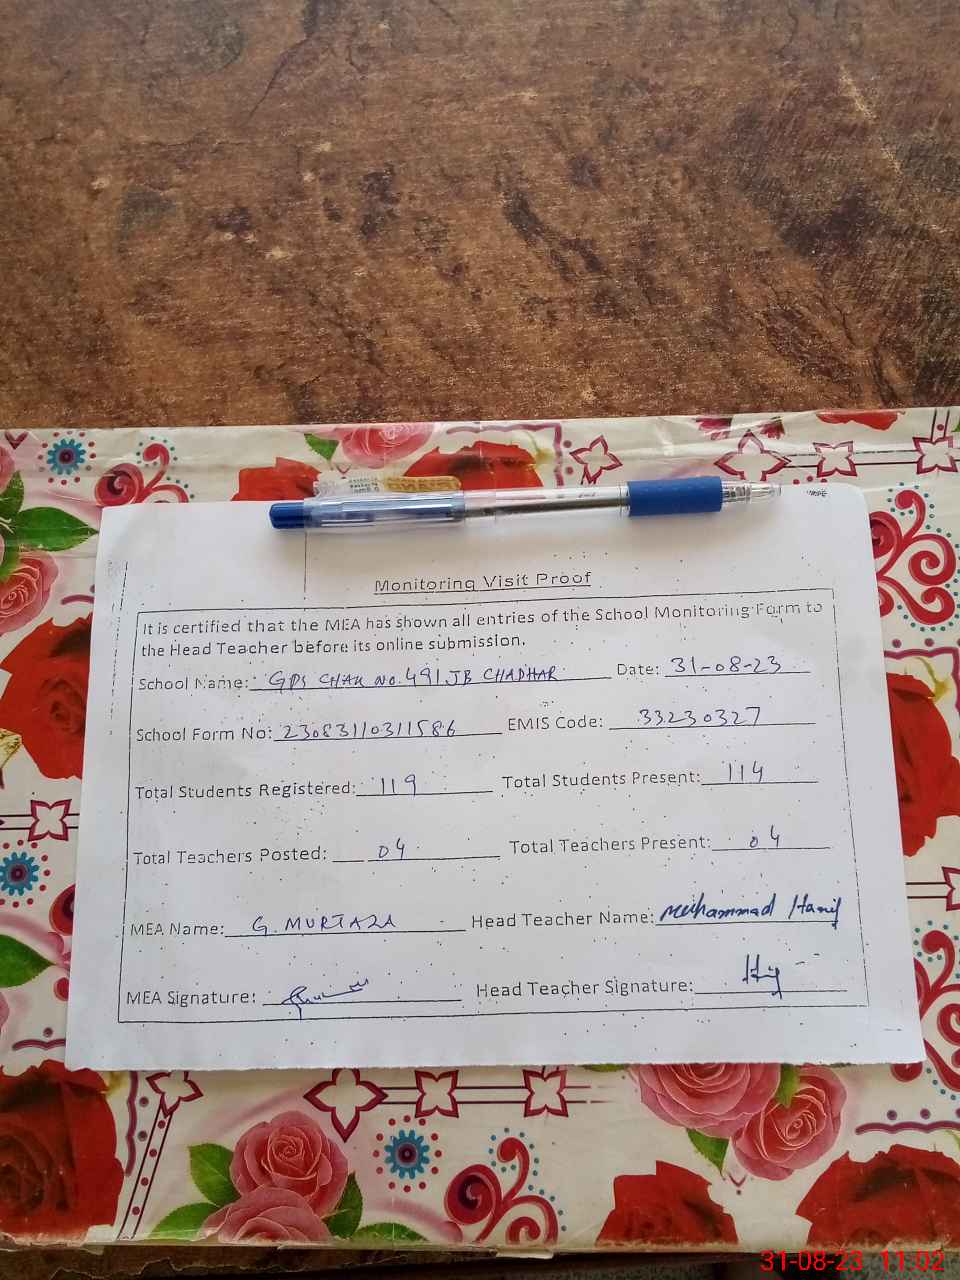 Monitoring Visit Proof
It is certified that the MEA has shown all entries of the School Monitoring Form to
the Head Teacher before its online submission.
School Name: GPS CHAK NO. 491 JB CHADHAR Date: 31-08-23
School Form No: 230831103115 86 EMIS Code: 33230327
Total Students Registered: 119 Total Students Present: 114
Total Teachers Posted: 04 Total Teachers Present: 04
MEA Name: G. MURTAZA Head Teacher Name: Muhammad Hanif
MEA Signature: Head Teacher Signature:
31-08-23 11:02